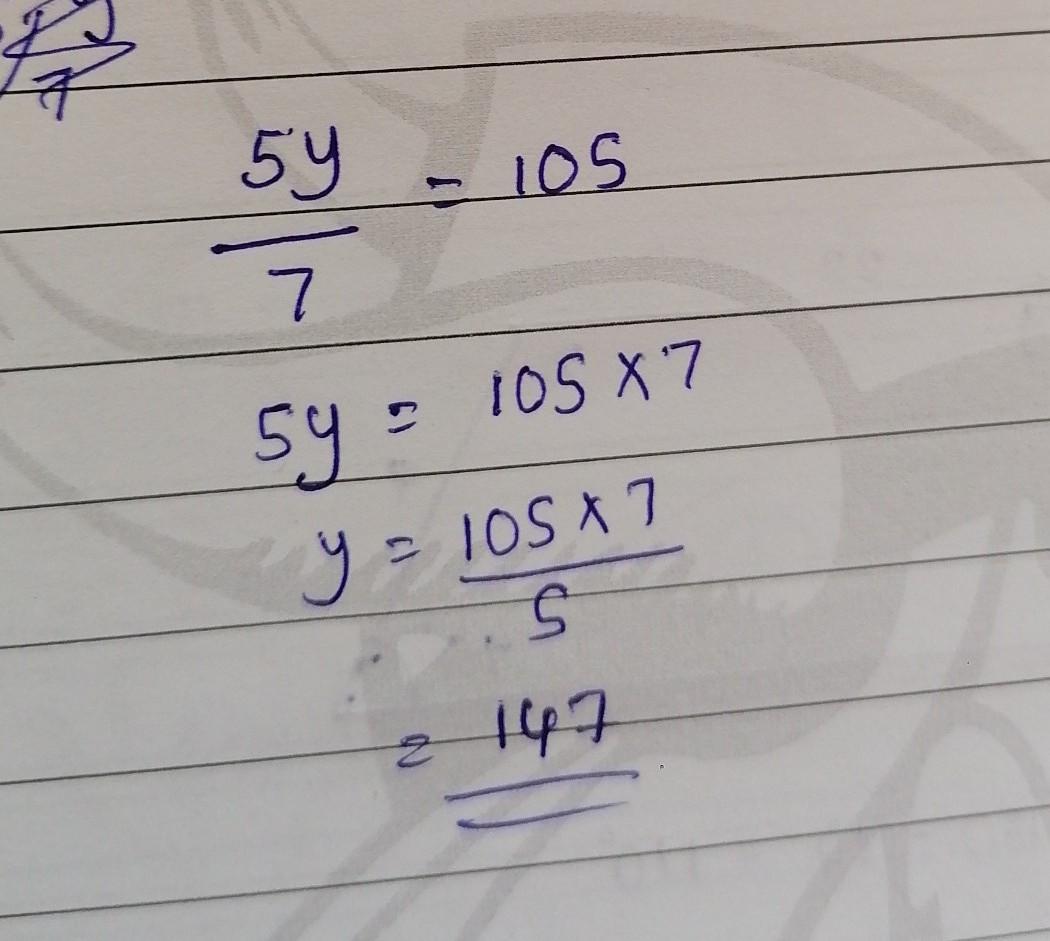 5y/7 = 105
5y = 105 x 7
y = 105 x 7/5
= 147